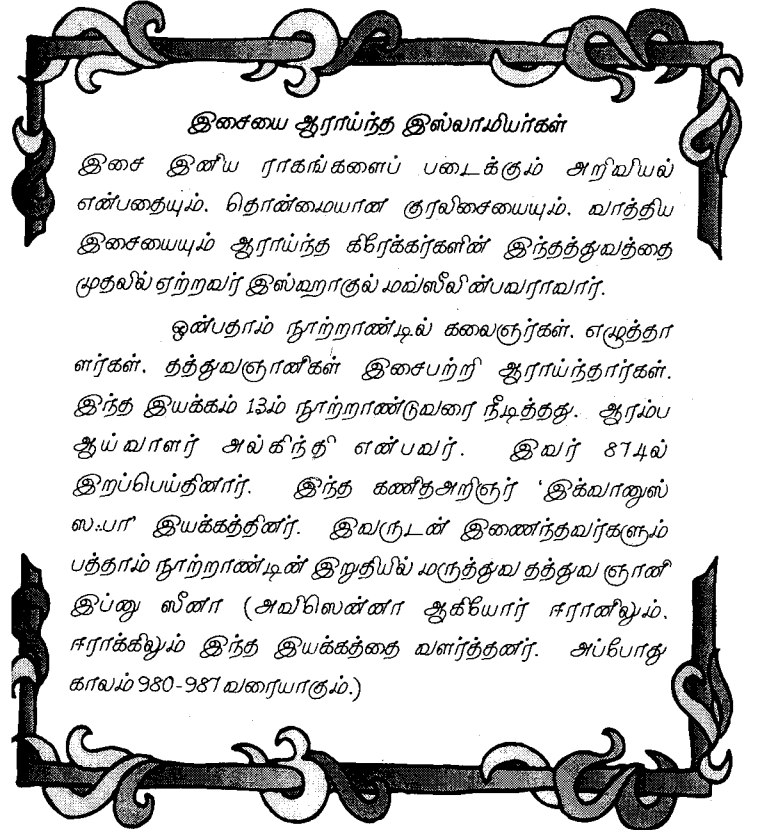 இசையை ஆராய்ந்த இஸ்லாமியர்கள்
இசை இனிய ராகங்களைப் படைக்கும் அறிவியல்
என்பதையும். தொன்மையான குரலிசையையும். வாத்திய
இசையையும் ஆராய்ந்த கிரேக்கர்களின் இந்தத்துவத்தை
முதலில் ஏற்றவர் இஸ்ஹாகுல் மவ்ஸீலின்பவராவார்.
ஒன்பதாம் நூற்றாண்டில் கலைஞர்கள். எழுத்தா
ளர்கள். தத்துவஞானிகள் இசைபற்றி ஆராய்ந்தார்கள்.
இந்த இயக்கம் 13ம் நூற்றாண்டுவரை நீடித்தது. ஆரம்ப
ஆய்வாளர் அல்கிந்தி என்பவர். இவர் 874ல்
இறப்பெய்தினார். இந்த கணிதஅறிஞர் 'இக்வானுஸ்
ஸஃபா' இயக்கத்தினர். இவருடன் இணைந்தவர்களும்
பத்தாம் நூற்றாண்டின் இறுதியில் மருத்துவ தத்துவ ஞானி
இப்னு ஸீனா (அவிஸென்னா ஆகியோர் ஈரானிலும்.
ஈராக்கிலும் இந்த இயக்கத்தை வளர்த்தனர். அப்போது
காலம் 980-987 வரையாகும்.)